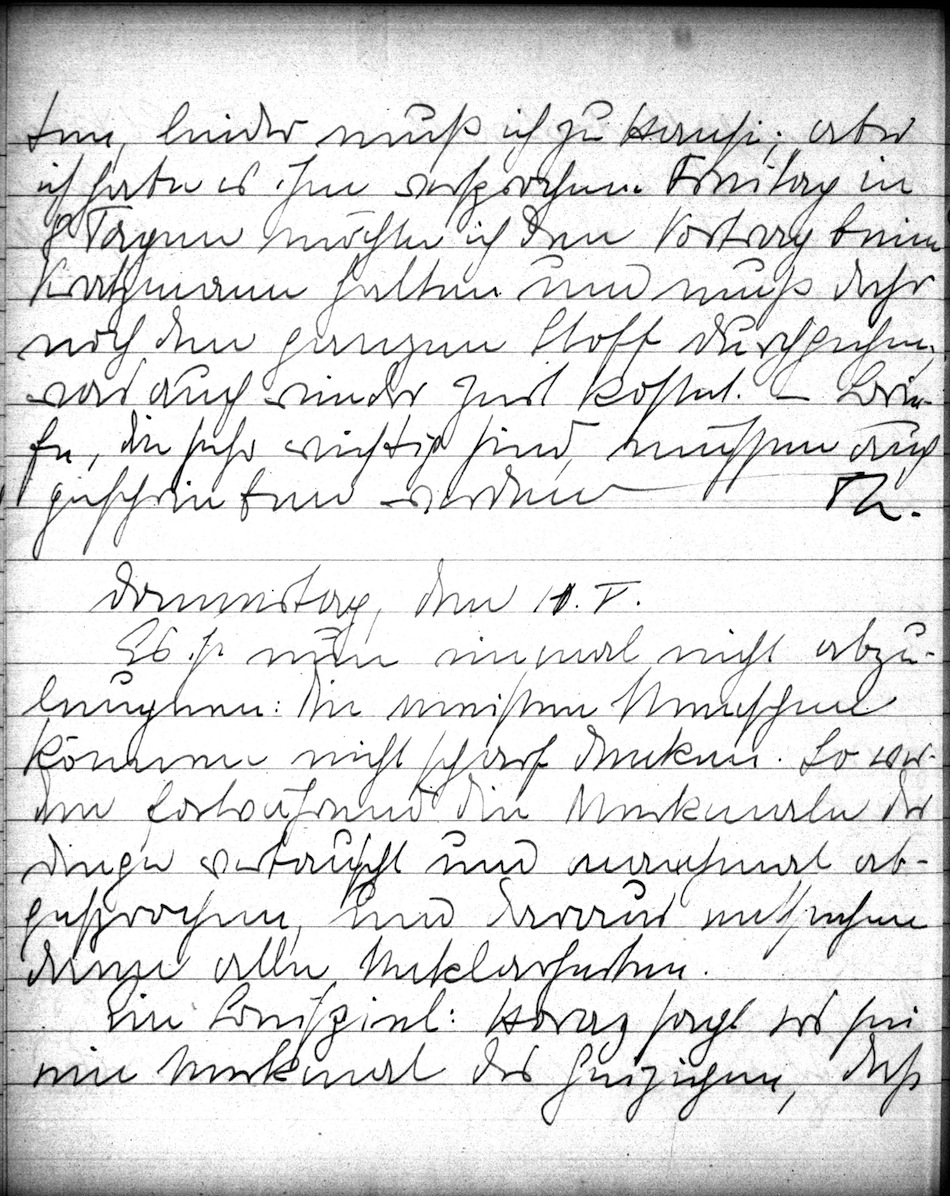 ten, leider muß ich zu Hansi; aber
ich habe es ihm versprochen. Freitag in
8 Tagen möchte ich den Vortrag beim
Kratzmann halten und muß daher
noch den ganzen Stoff durchgehen,
was auch wieder Zeit kostet. – Brie-
fe, die sehr wichtig sind, müssen auch
geschrieben werden
Donnerstag, den 10. V.
Es ist nun einmal nicht abzu-
leugnen: Die meisten Menschen
können nicht scharf denken. So wer-
den fortwährend die Merkmale der
Dinge vertauscht und manchmal ab-
gesprochen, und daraus entstehen
dann alle Unklarheiten.
Ein Beispiel: Horaz sagt es sei
ein Merkmal des Geizigen, daß